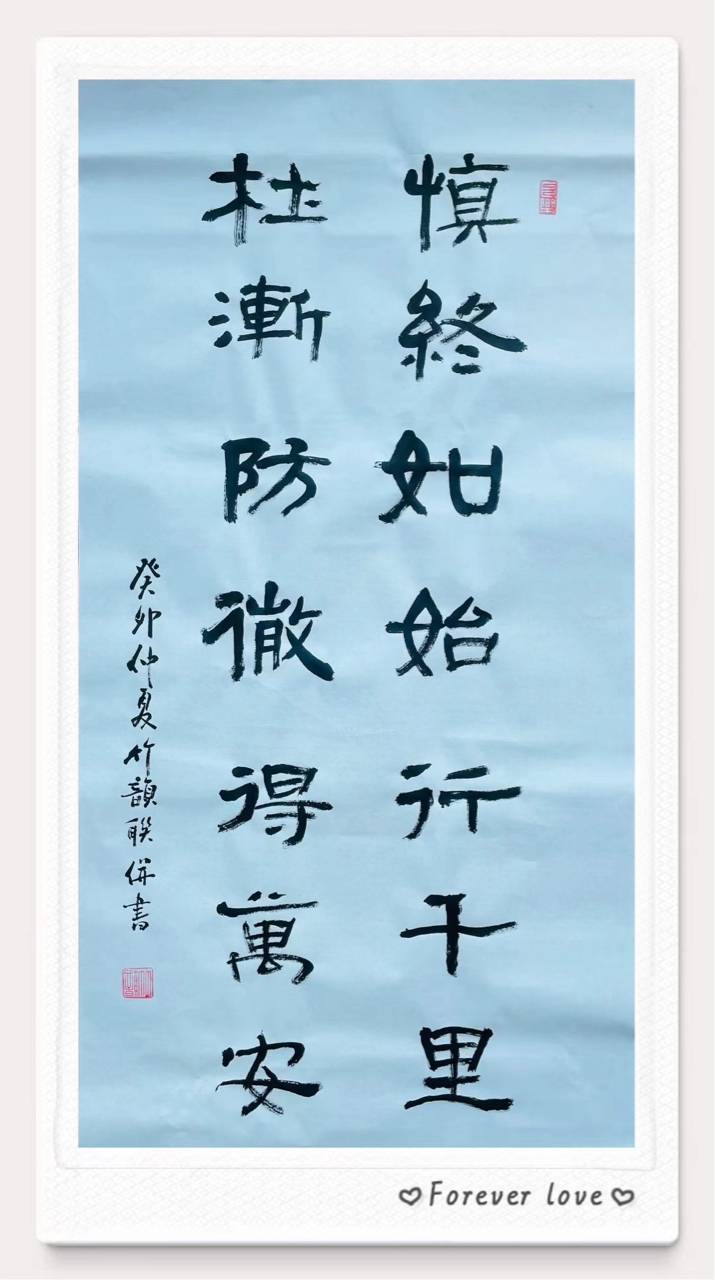 慎終如始行千里
杜漸防微得萬安
癸卯仲夏竹韻聯併書
Forever love